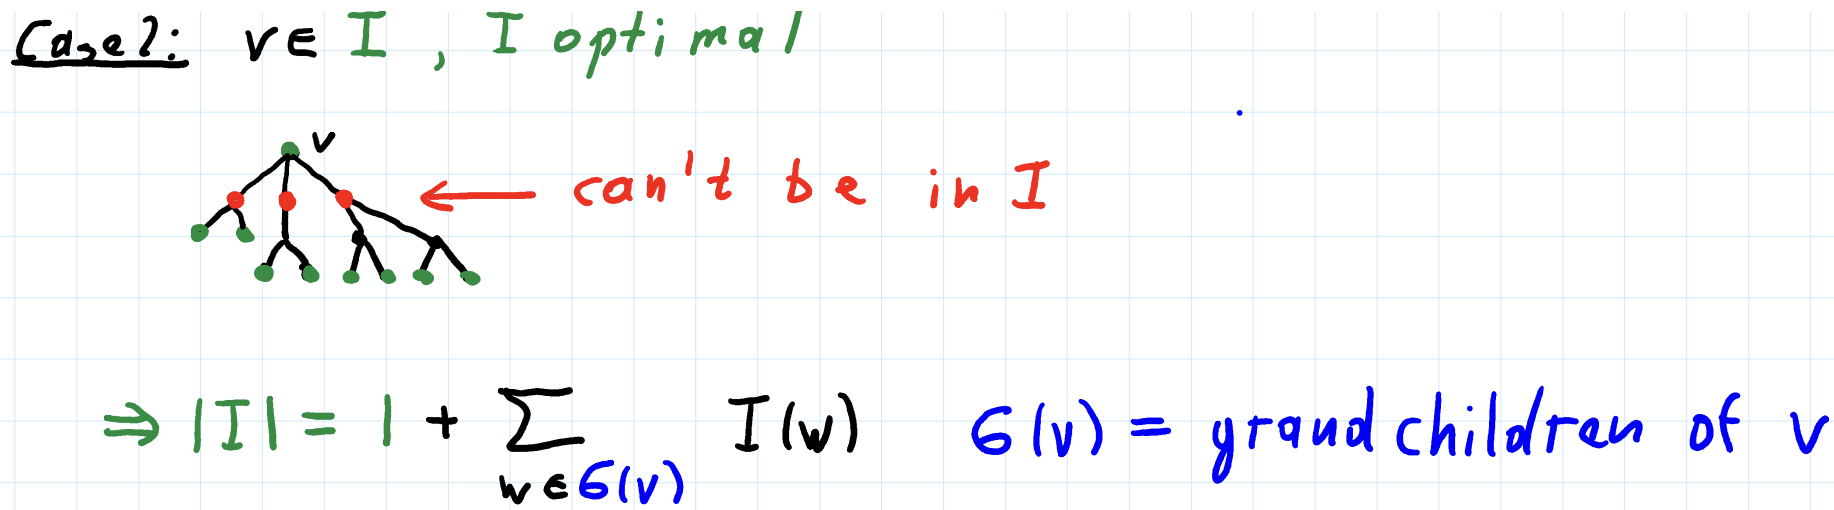 Case 2: v ∈ I, I optimal
v
← can't be in I
⇒ |I| = 1 + ∑ I(w) G(v) = grandchildren of v
w ∈ G(v)